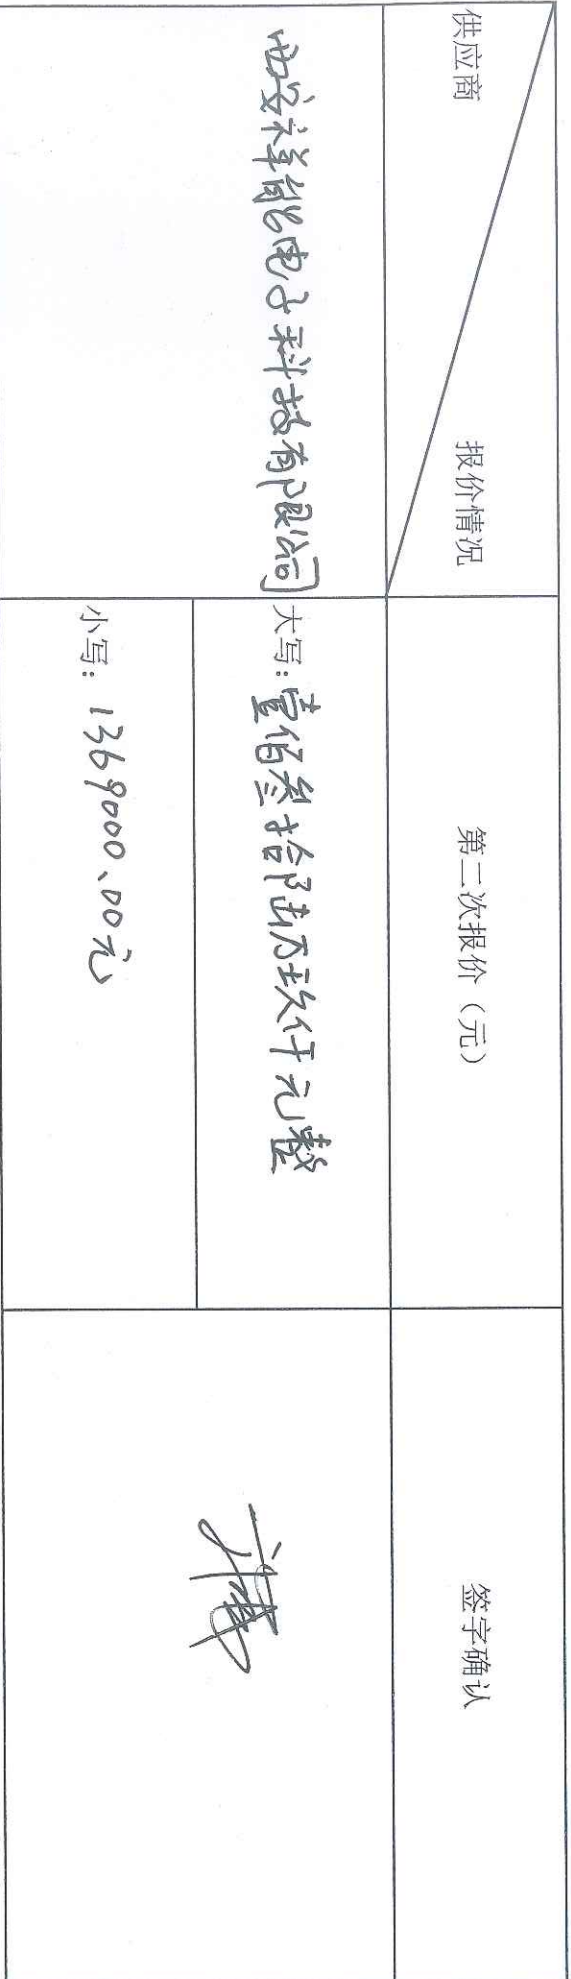 供应商
报价情况
第二次报价（元）
签字确认
西安祥能电子科技有限公司
大写：壹佰叁拾陆万玖仟元整
小写：1369000.00元